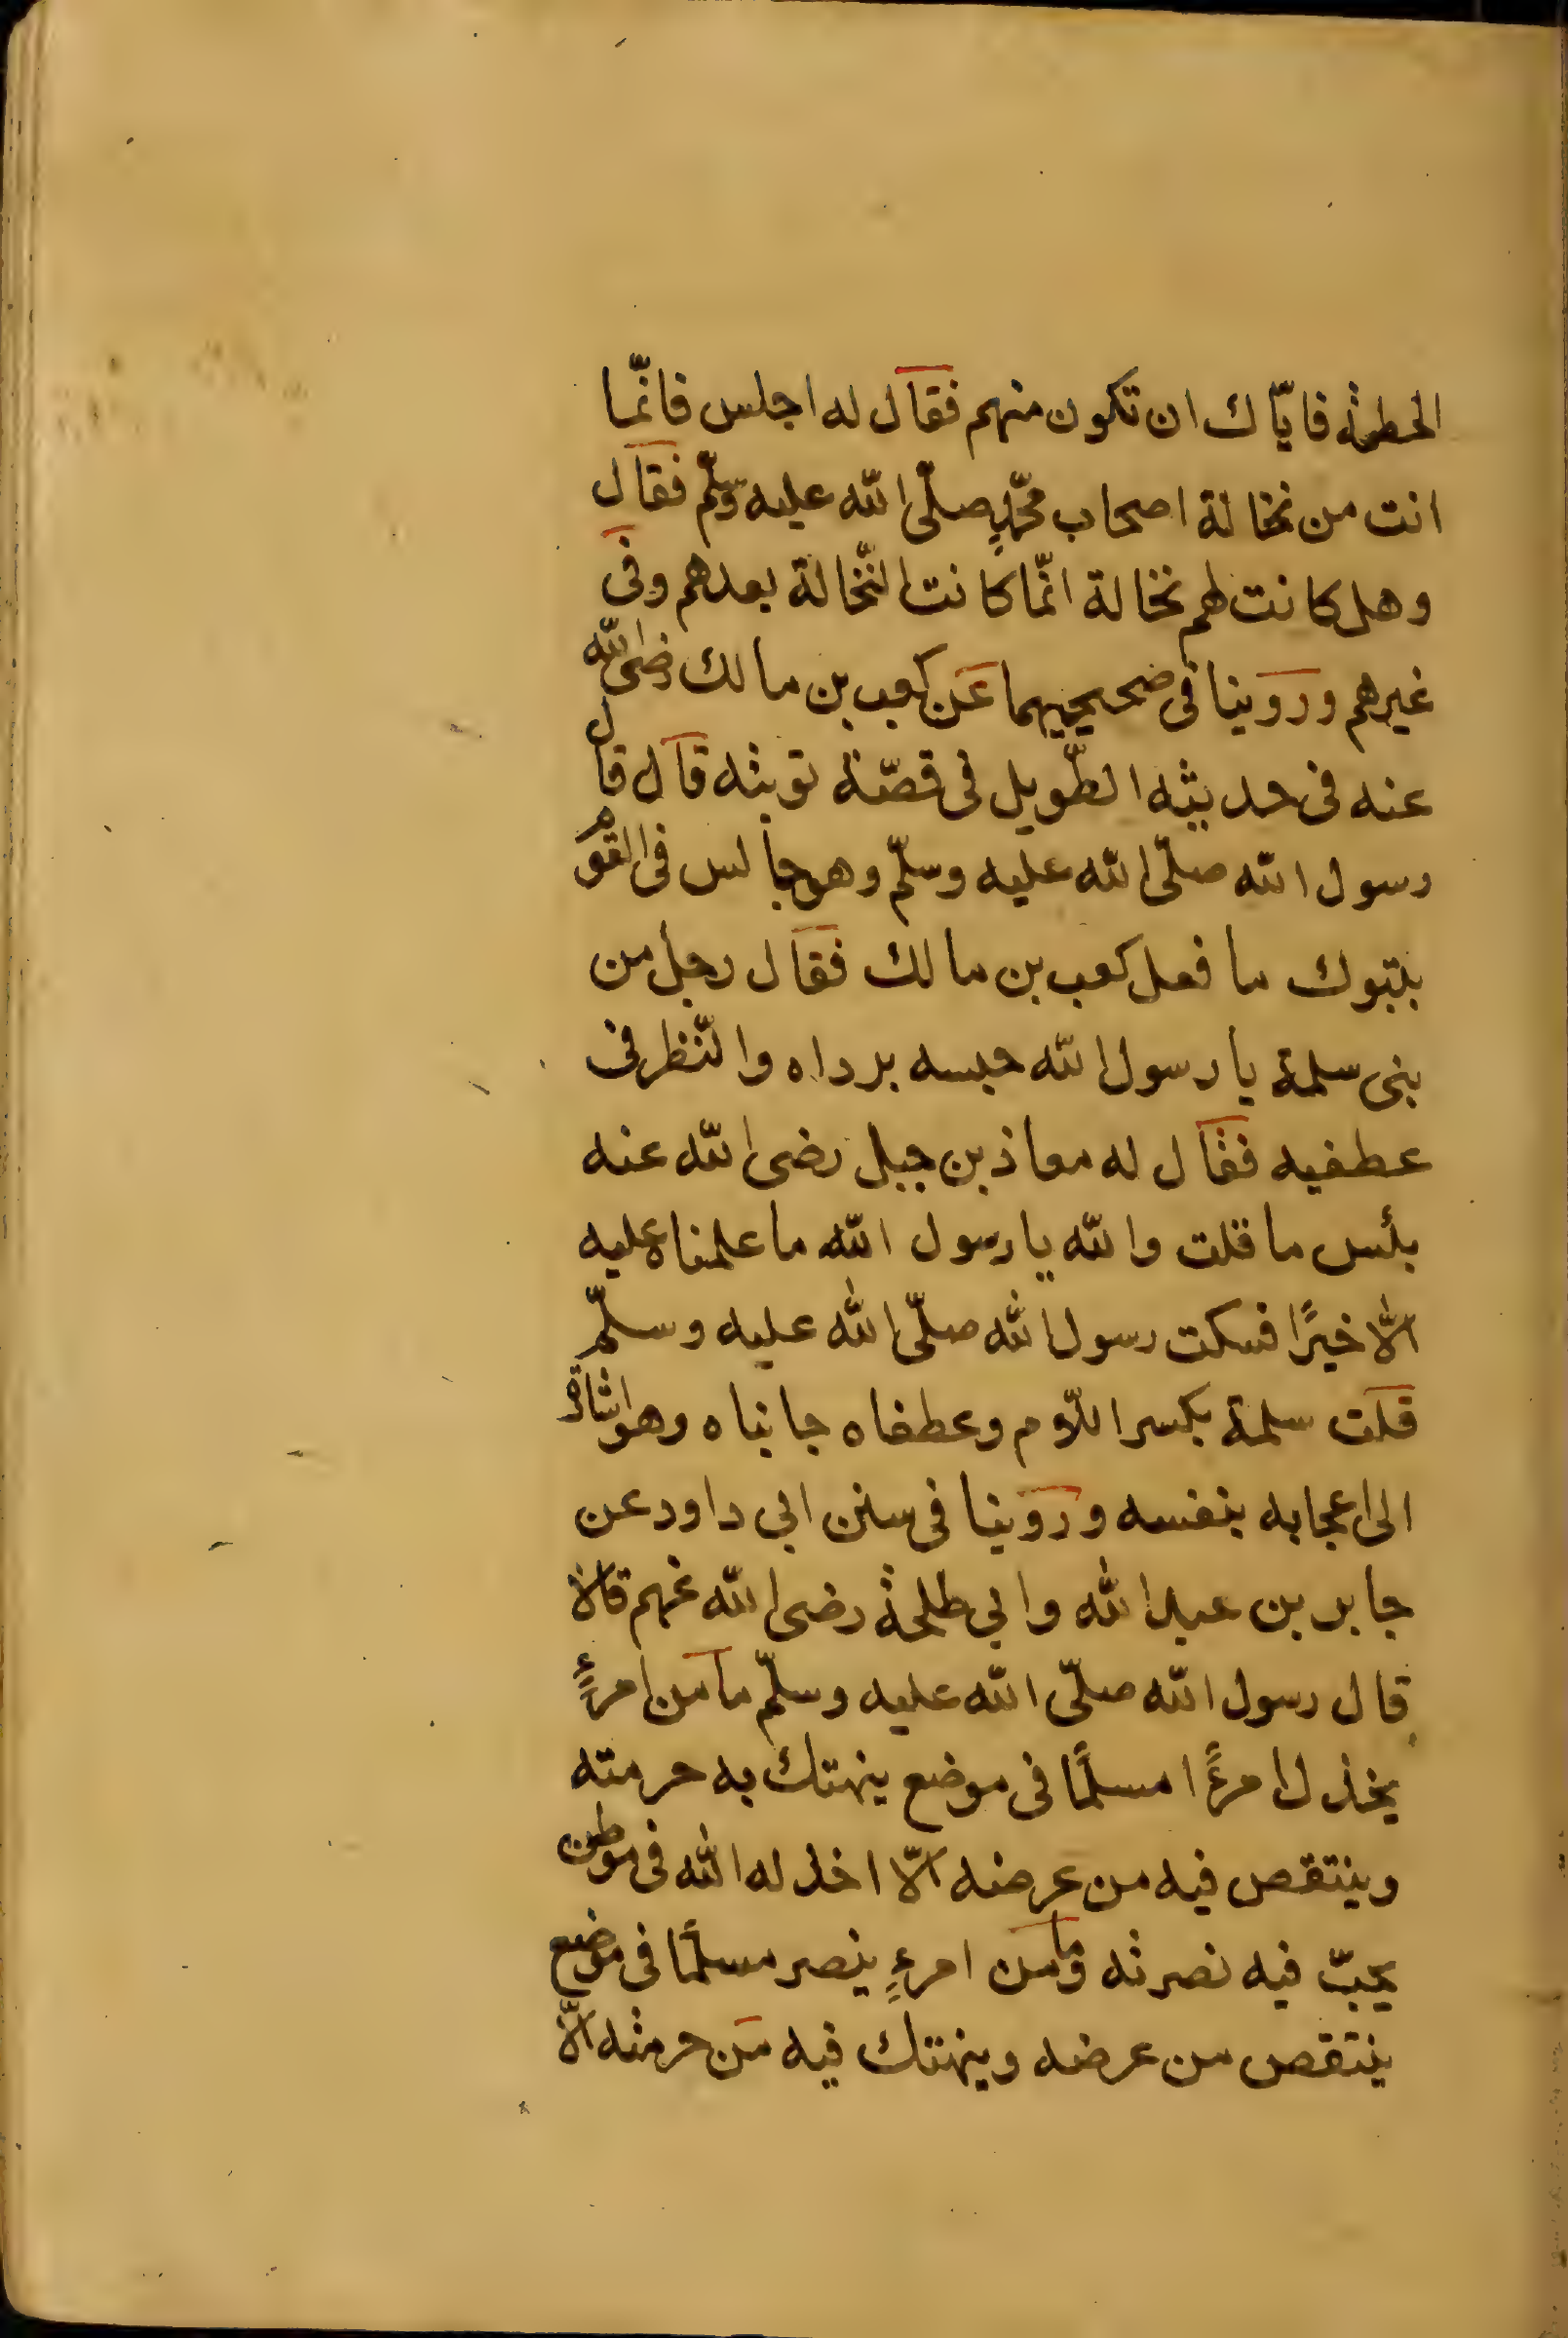 الحطمة فايّاك ان تكون منهم فقال له اجلس فانّما
انت من نخالة اصحاب محمّدٍ صلّى الله عليه وسلّم فقال
وهل كانت لهم نخالة انّما كانت النّخالة بعدهم وفى
غيرهم وروينا فى صحيحيهما عن كعب بن مالك رضى الله
عنه فى حديثه الطّويل فى قصّة توبته قال قال
رسول الله صلّى الله عليه وسلّم وهو جالس فى القوم
بتبوك ما فعل كعب بن مالك فقال رجل من
بنى سلمة يا رسول الله حبسه برداه والنّظر فى
عطفيه فقال له معاذ بن جبل رضى الله عنه
بئس ما قلت والله يا رسول الله ما علمنا عليه
الّا خيرًا فسكت رسول الله صلّى الله عليه وسلّم
قلت سلمة بكسر اللّام وعطفاه جانباه وهو اشارة
الى اعجابه بنفسه وروينا فى سنن ابى داود عن
جابر بن عبد الله وابى طلحة رضى الله عنهم قالا
قال رسول الله صلّى الله عليه وسلّم ما من امرءٍ
يخذل امرءًا مسلمًا فى موضع ينهتك به حرمته
وينتقص فيه من عرضه الّا اخذله الله فى موطن
يحبّ فيه نصرته وما من امرءٍ ينصر مسلمًا فى موضع
ينتقص من عرضه وينهتك فيه من حرمته الّا